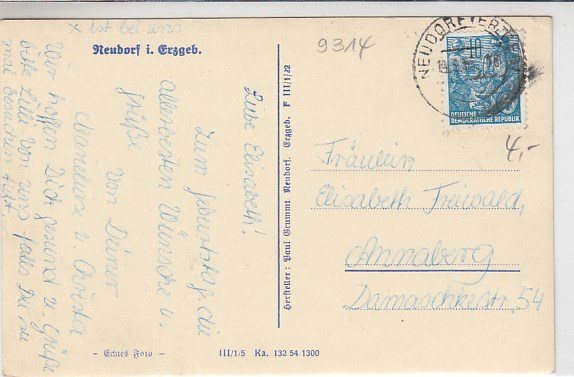 x ist bei uns
Neudorf i. Erzgeb.
9314
NEUDORF (ERZGEB
10
DEUTSCHE
DEMOKRATISCHE REPUBLIK
4,-
Liebe Elisabeth!
Zum Geburtstag die
allerbesten Wünsche u.
Grüße
von Deiner
u. Christa
Wir hoffen Dich gesund u. Grüße
bitte Lilli von uns falls Du sie
mal besuchen tust
Hersteller: Paul Grummt, Neudorf, Erzgeb. F III/1/22
Fräulein
Elisabeth Freiwald,
Annaberg
Damaschkestr, 54
- Echtes Foto - III/1/5 Ka. 132 54 1300